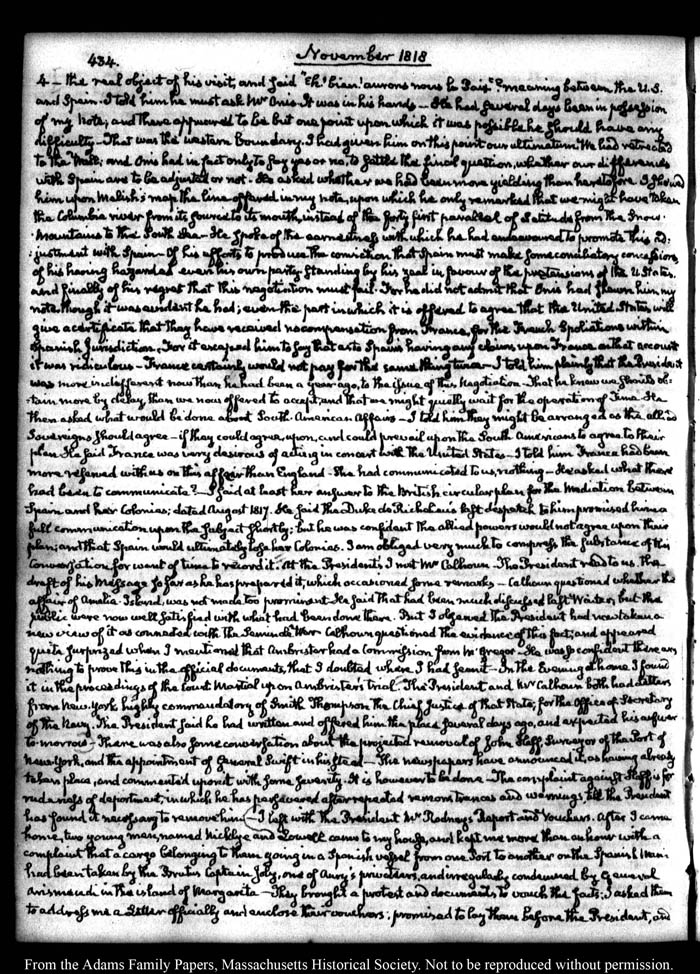 434.
November 1818
4— the real object of his visit, and said "Eh! bien! aurons nous la Paix"? meaning between the U.S.
and Spain. I told him he must ask Mr Onis. It was in his hands— He had several days been in possession
of my Note, and there appeared to be but one point upon which it was possible he should have any
difficulty— That was the western boundary. I had given him on this point our ultimatum. We had retreated
to the Wall; and Onis had in fact only to say yes or no, to settle the final question, whether our differences
with Spain are to be adjusted or not. He asked whether we had been more yielding than heretofore. I showed
him upon Melish's map the line offered in my note, upon which he only remarked that we might have taken
the Columbia river from its source to its mouth, instead of the forty first parallel of Latitude from the Snow
Mountains to the South Sea— He spoke of the earnestness with which he had endeavoured to promote this ad-
justment with Spain— Of his efforts to produce the conviction that Spain must make some conciliatory concessions
of his having hazarded even his own party standing by his zeal in favour of the pretensions of the U States.
and finally of his regret that this negotiation must fail. For he did not admit that Onis had shewn him my
note though it was evident he had; even the part in which it is offered to agree that the United States will
give a certificate that they have received no compensation from France, for the French Spoliations within
Spanish Jurisdiction. For it escaped him to say that as to Spain's having any claim upon France on that account
it was ridiculous— France certainly would not pay for the same thing twice— I told him plainly that the President
was more indifferent now than he had been a year ago, to the issue of this Negotiation— That he knew we should ob-
tain more by delay, than we now offered to accept, and that we might quietly wait for the operation of Time. He
then asked what would be done about South-American Affairs— I told him they might be arranged as the allied
Sovereigns should agree— if they could agree, upon, and could prevail upon the South Americans to agree to their
plan. He said France was very desirous of acting in concert with the United States— I told him France had been
more reserved with us on this affair than England. She had communicated to us, nothing— He asked what there
had been to communicate?— I said at least her answer to the British circular plan for the Mediation between
Spain and her Colonies; dated August 1817. He said the Duke de Richelieu's last despatch to him promised him a
full communication upon the subject shortly; but he was confident the allied powers would not agree upon their
plan; and that Spain would ultimately lose her Colonies. I am obliged very much to compress the substance of this
Conversation for want of time to record it. At the President's, I met Mr Calhoun. The President read to us, the
draft of his Message so far as he has prepared it, which occasioned some remarks— Calhoun questioned whether the
affair of Amelia Island, was not made too prominent. He said that had been much discussed last Winter, but the
public were now well satisfied with what had been done there. But I observed the President had now taken a
new view of it as connected with the Seminole War. Calhoun questioned the evidence of this fact; and appeared
quite surprized when I mentioned that Ambrister had a Commission from McGregor. He was so confident there was
nothing to prove this in the official documents, that I doubted where I had seen it— In the Evening at home I found
it in the proceedings of the Court Martial upon Ambrister's trial. The President and Mr Calhoun both had letters
from New-York highly commendatory of Smith Thompson the Chief Justice of that State, for the Office of Secretary
of the Navy. The President said he had written and offered him the place several days ago, and expected his answer
to-morrow— There was also some conversation about the projected removal of John Haff Surveyor of the Port of
New-York, and the appointment of General Swift in his stead— The newspapers have announced it, as having already
taken place, and commented upon it with some severity. It is however to be done— The complaint against Haff is for
rudeness of deportment, in which he has persevered after repeated remonstrances and warnings, till the President
has found it necessary to remove him— I left with the President Mr Rodney's Report and Vouchers. After I came
home, two young men, named Nicklye and Lowell came to my house, and kept me more than an hour with a
complaint that a cargo belonging to them going in a Spanish vessel from one Port to another on the Spanish Main
had been taken by the Brutus Captain Joly, one of Aury's privateers, and irregularly condemned by General
Arismendi in the island of Margarita— They brought a protest and documents, to vouch the facts; I asked them
to address me a Letter officially and enclose their vouchers; promised to lay them before the President, and
From the Adams Family Papers, Massachusetts Historical Society. Not to be reproduced without permission.